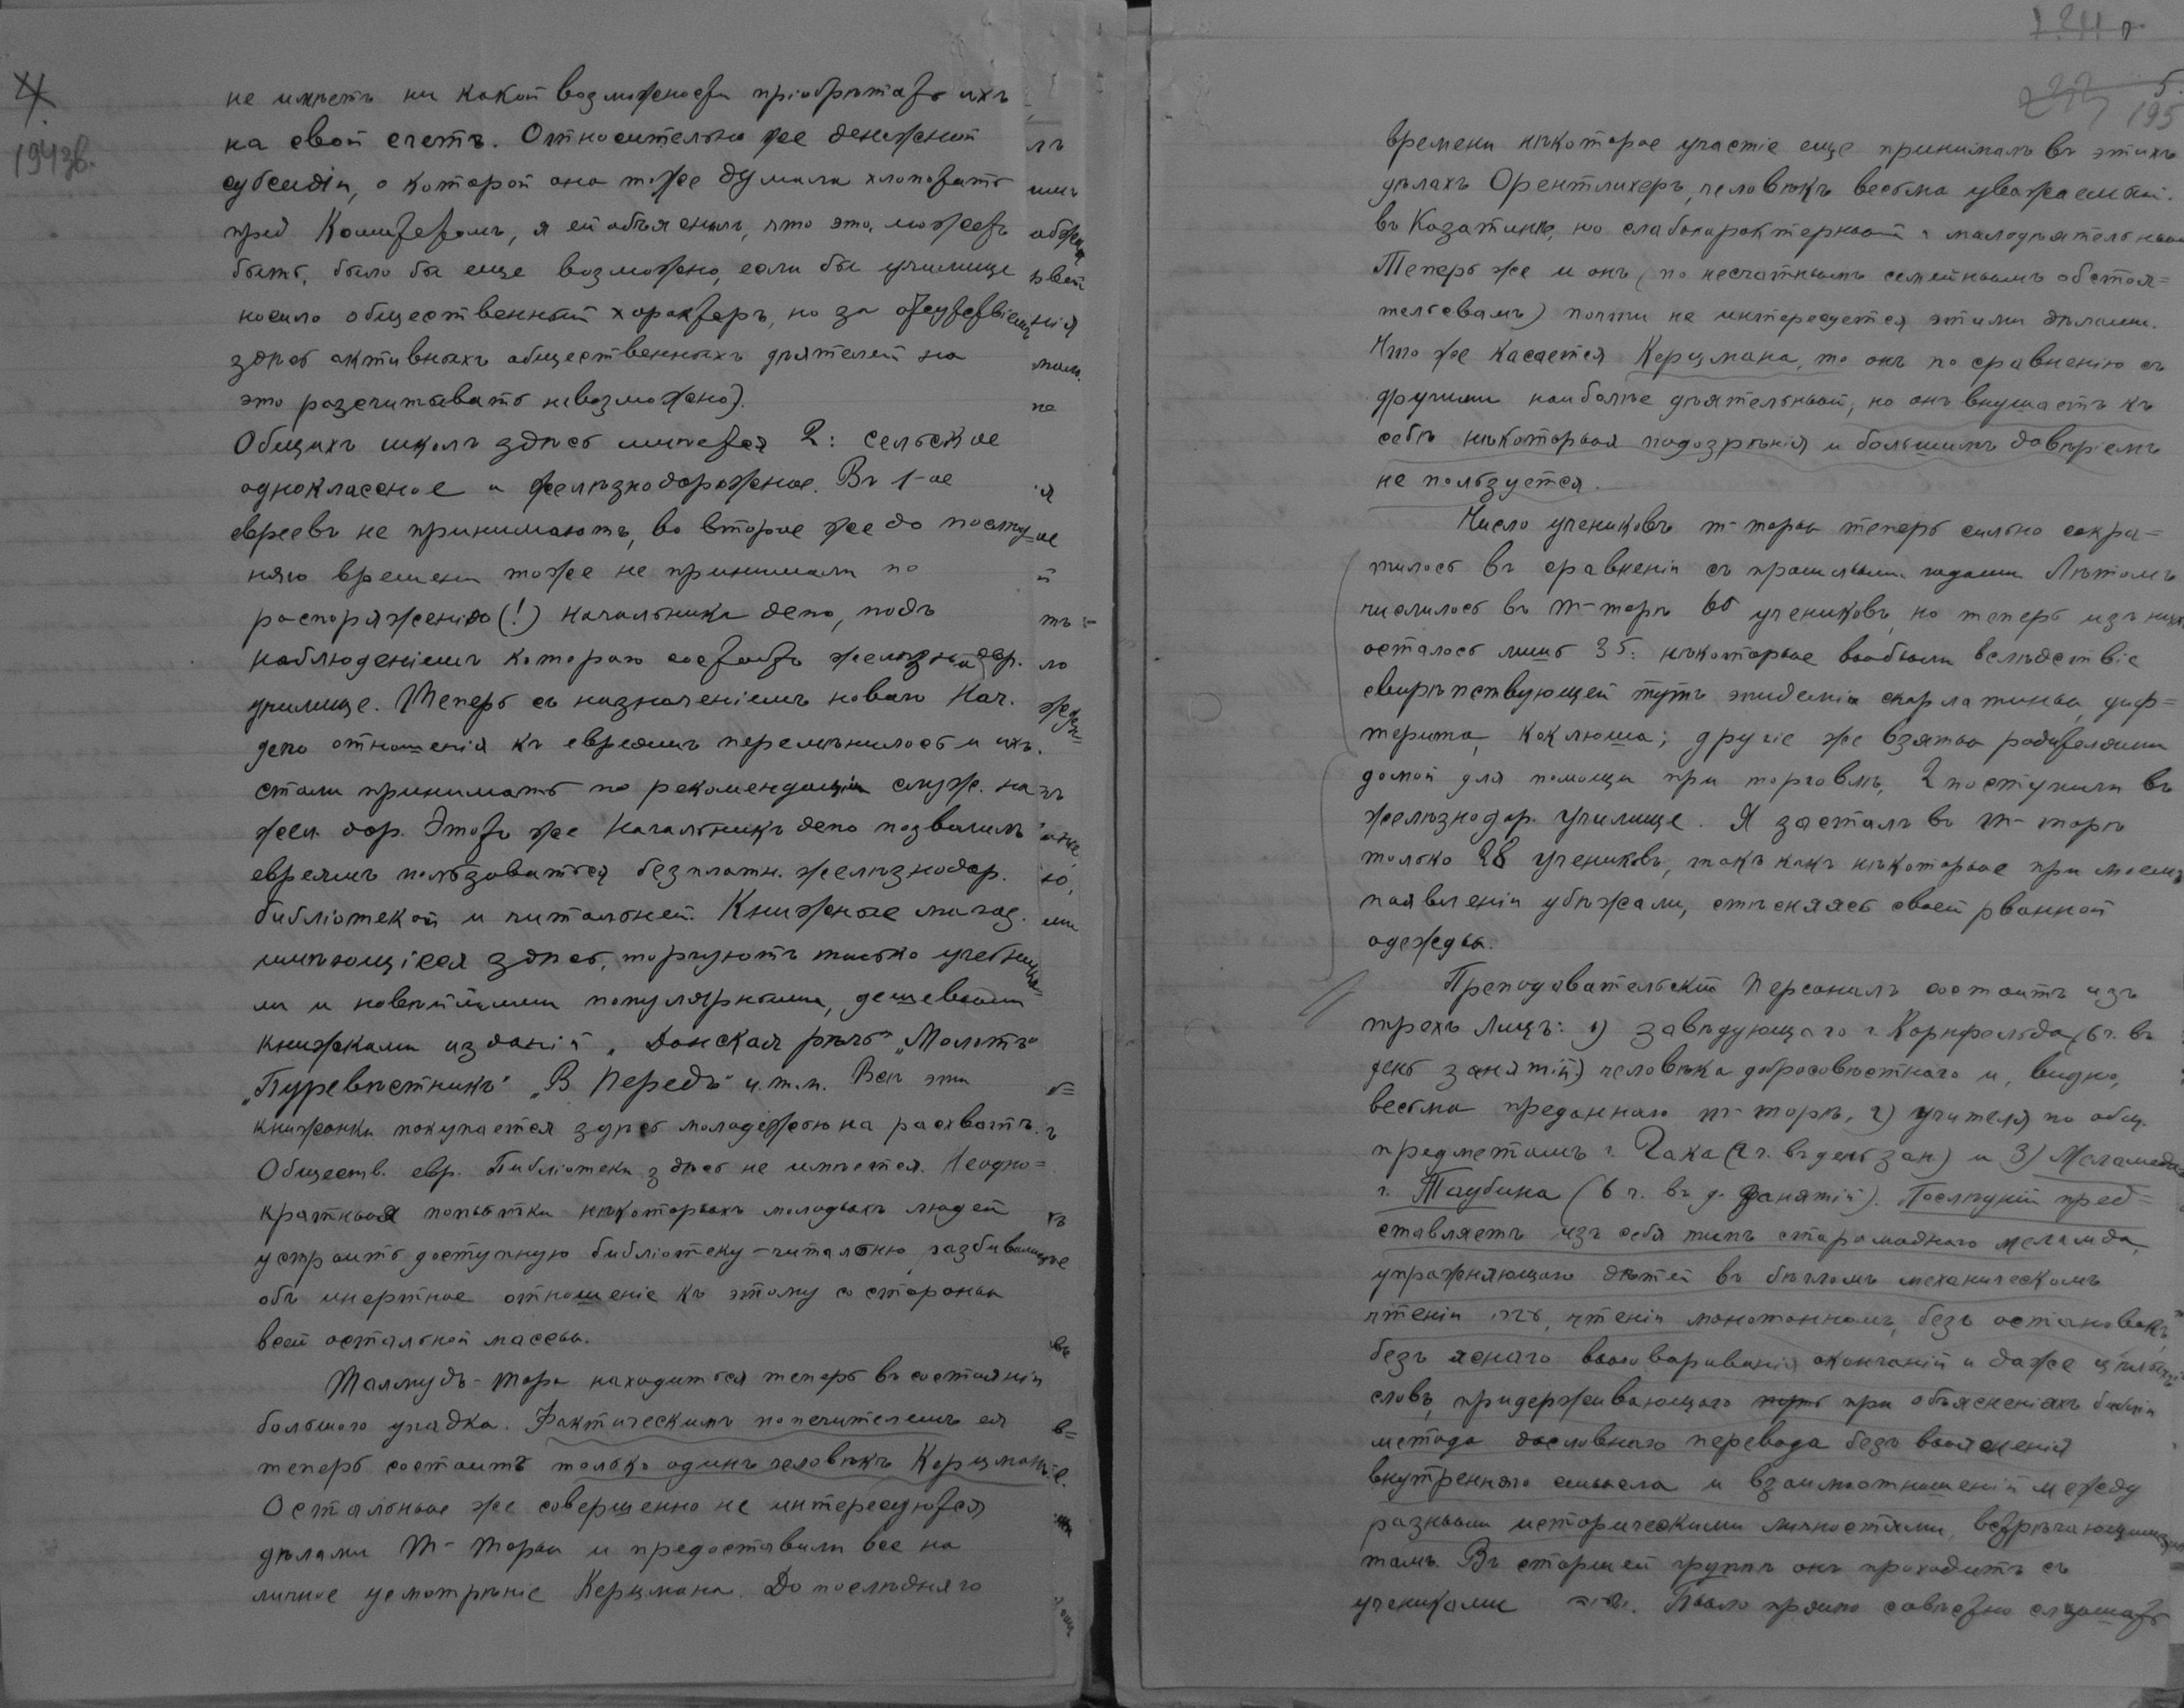 4.
194 зв.
не имѣетъ ни какой возможности пріобрѣтать ихъ
на свой счетъ. Относительно же денежной
субсидіи, о которой она тоже думала хлопотать
пред Комитетомъ, я ей объяснилъ, что это, можетъ
быть, было бы еще возможно, если бы училище
носило общественный характеръ, но за отсутствіемъ
здѣсь активныхъ общественныхъ дѣятелей на
это разсчитывать невозможно).
Общихъ школъ здѣсь имѣется 2: сельское
одноклассное и желѣзнодорожное. Въ 1-ое
евреевъ не принимаютъ, во второе же до послѣд=
няго времени тоже не принимали по
распоряженію (!) начальника депо, подъ
наблюденіемъ котораго состоитъ желѣзнодор.
училище. Теперь съ назначеніемъ новаго Нач.
депо отношенія къ евреямъ перемѣнилось и ихъ
стали принимать по рекомендаціи служ. на
жел. дор. Этотъ же Начальникъ депо позволилъ
евреямъ пользоваться безплатн. желѣзнодор.
библіотекой и читальней. Книжные магаз.
имѣющіеся здѣсь, торгуютъ только учебника=
ми и новѣйшими популярными, дешевыми
книжками изданій „Донская рѣчь" „Молотъ"
„Буревѣстникъ" „Впередъ" и т. п. Всѣ эти
книжонки покупается здѣсь молодежью на расхватъ.
Обществ. евр. Библіотеки здѣсь не имѣется. Неодно=
кратныя попытки нѣкоторыхъ молодыхъ людей
устроить доступную библіотеку-читальню, разбивались
объ инертное отношеніе къ этому со стороны
всей остальной массы.
Талмудъ-Тора находится теперь въ состояніи
большого упадка. Фактическимъ попечителемъ ея
теперь состоитъ только одинъ человѣкъ Керцманъ.
Остальные же совершенно не интересуются
дѣлами Т-Торы и предоставили все на
личное усмотрѣніе Керцмана. До послѣдняго
5.
195
времени нѣкоторое участіе еще принималъ въ этихъ
дѣлахъ Орентлихеръ, человѣкъ весьма уважаемый
въ Казатинѣ, но слабохарактерный и малодѣятельный
Теперь же и онъ (по несчастнымъ семейнымъ обстоя=
тельствамъ) почти не интересуется этими дѣлами.
Что же касается Керцмана, то онъ по сравненію съ
другими наиболѣе дѣятельный, но онъ внушаетъ къ
себѣ нѣкоторыя подозрѣнія и большимъ довѣріемъ
не пользуется.
Число учениковъ т-торы теперь сильно сокра=
тилось въ сравненіи съ прошлыми годами Лѣтомъ
числилось въ т-торѣ учениковъ, но теперь изъ нихъ
осталось лишь 35: нѣкоторые выбыли вслѣдствіе
свирѣпствующей тутъ эпидеміи скарлатины, диф=
терита, коклюша; другіе же взяты родителями
домой для помощи при торговлѣ, 2 поступили въ
желѣзнодор. училище. Я засталъ въ т-торѣ
только 28 учениковъ, такъ какъ нѣкоторые при моемъ
появленіи убѣжали, стѣсняясь своей рванной
одежды.
Преподавательскій персоналъ состоитъ изъ
трехъ лицъ: 1) завѣдующаго г. Корнфельда (6 ч. въ
день занятій) человѣка добросовѣстнаго и, видно,
весьма преданнаго т-торѣ, 2) учителя по общ.
предметамъ г. Гака (2 ч. въ день зан) и 3) Меламеда
г. Таубина (6 ч. въ д. занятій). Послѣдній пред=
ставляетъ изъ себя типъ старомоднаго меламда,
упражняющаго дѣтей въ бѣгломъ механическомъ
чтеніи чтеніи монотонномъ, безъ остановокъ,
безъ яснаго выговариванія окончаній и даже цѣлыхъ
словъ, придерживающаго при объясненіяхъ библіи
метода дословнаго перевода безъ выясненія
внутренняго смысла и взаимоотношеній между
разными историческими личностями, встрѣчающимися
тамъ. Въ старшей группѣ онъ проходитъ съ
учениками Было прямо совѣстно слушать